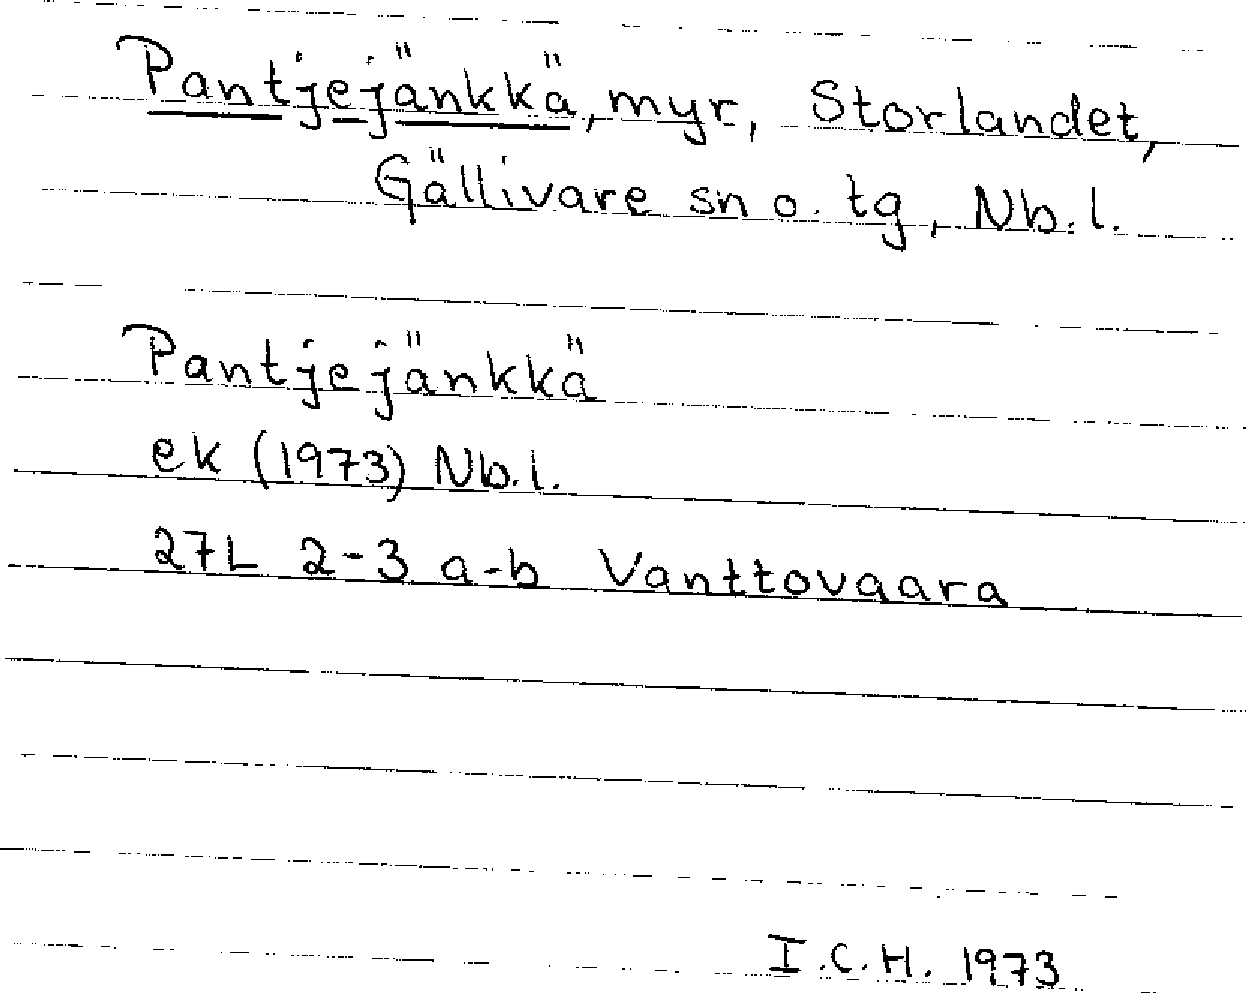 Pantjejänkkä, myr, Storlandet,
Gällivare sn o. tg, Nb.l.
Pantjejänkkä
ek (1973) Nb.l.
27L 2-3 a-b Vanttovaara
I.C.H. 1973